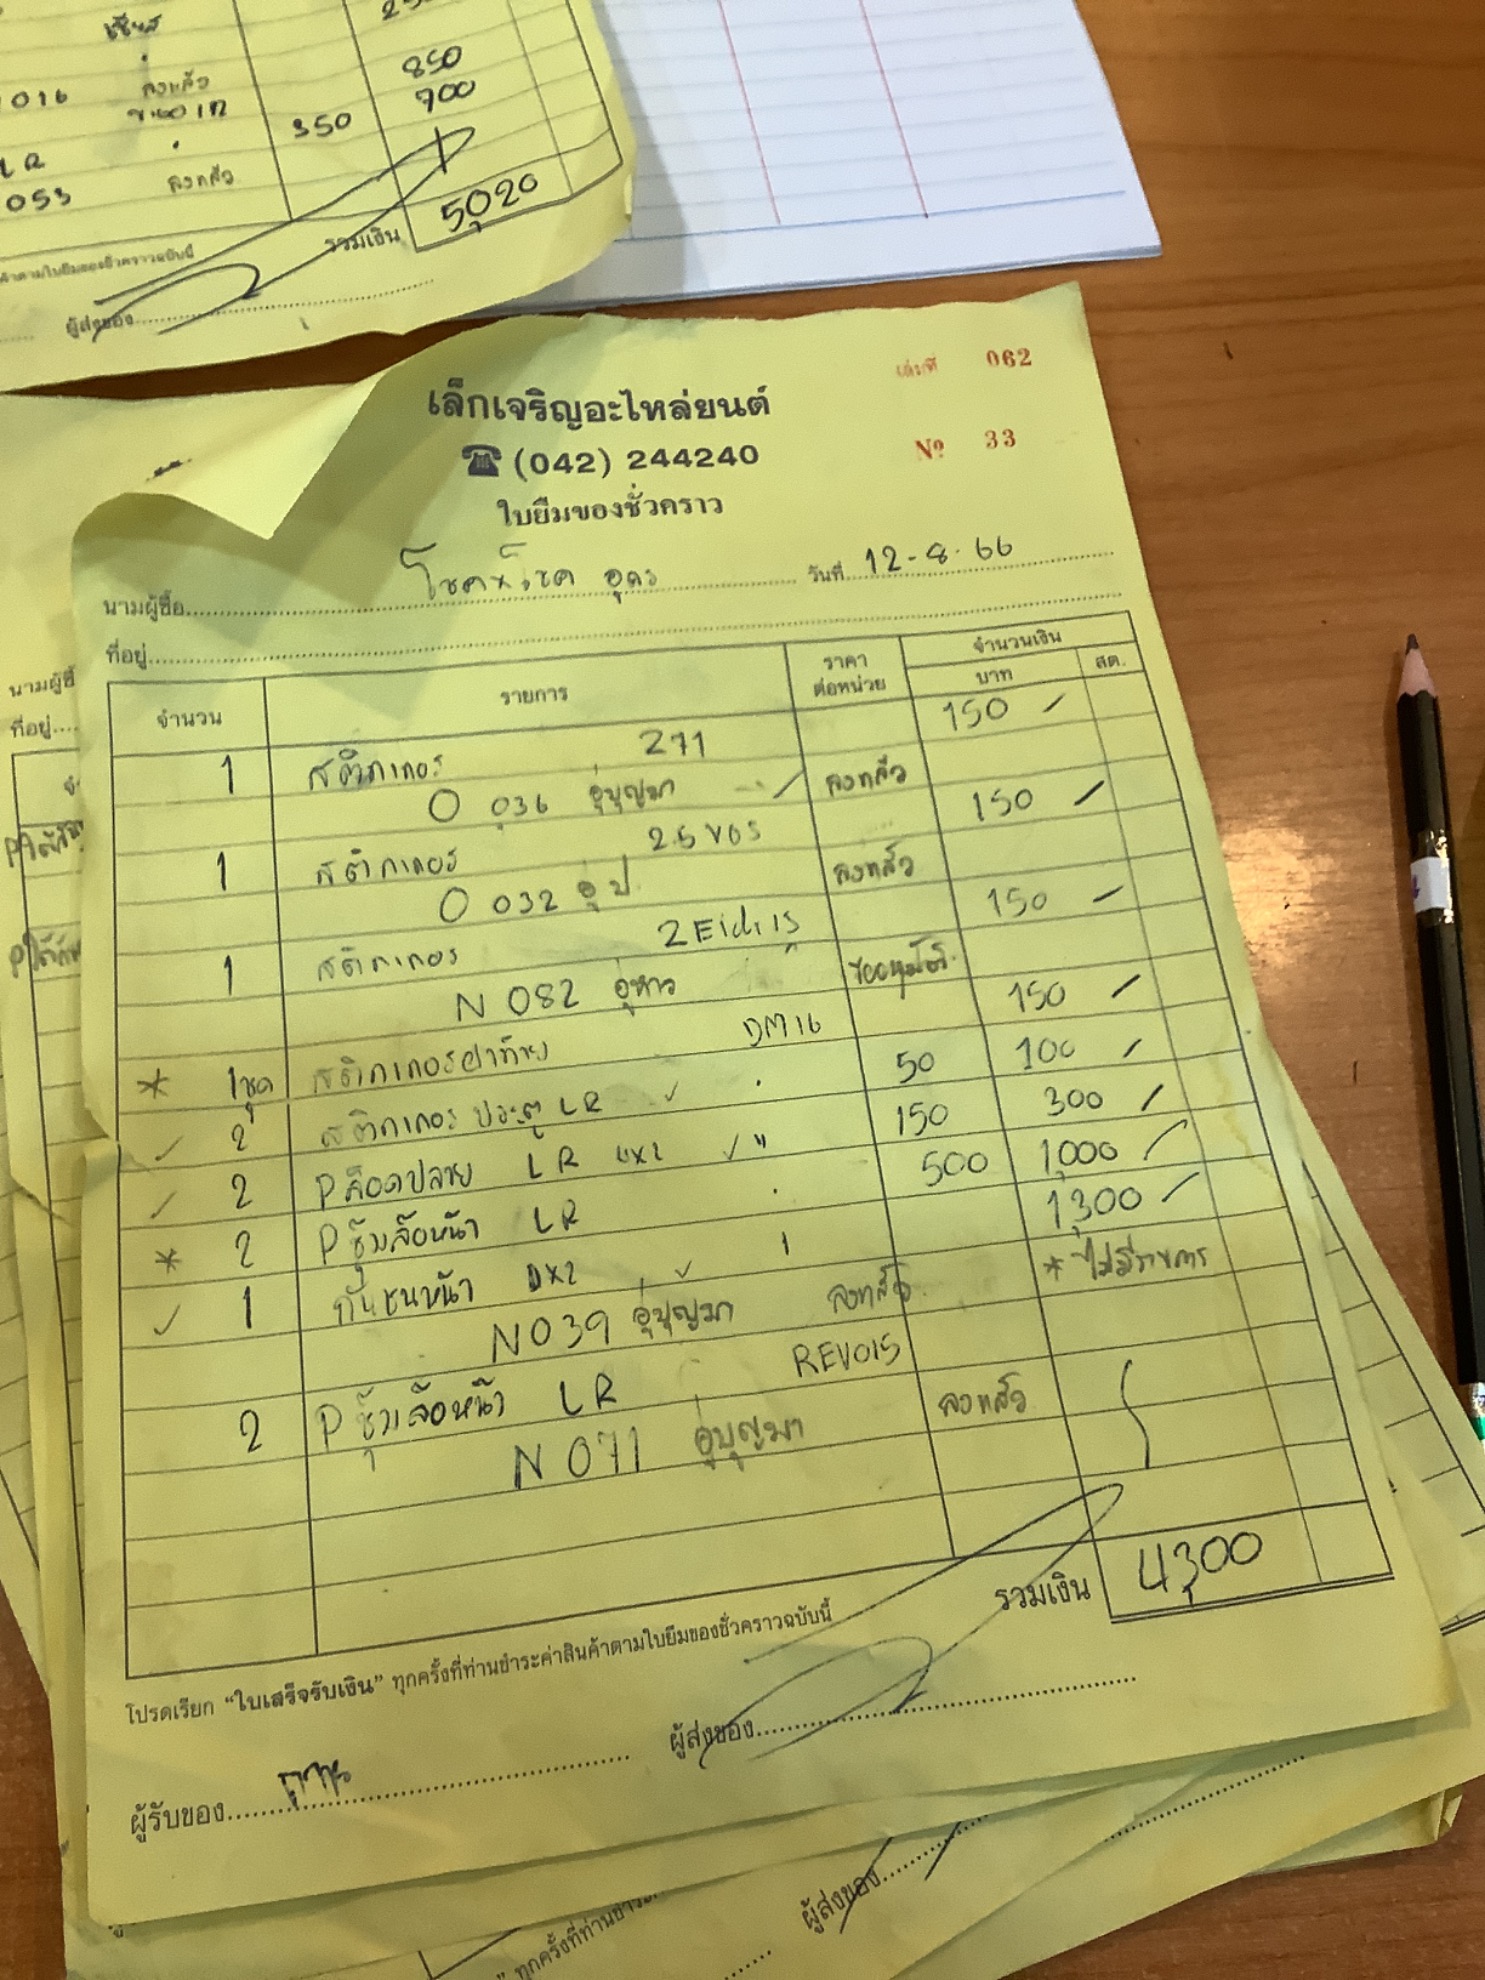 850
016 ลงแล้ว 700
350
LR
053 ลงแล้ว
รวมเงิน 5,020
ผู้ส่งของ
เล่มที่ 062
เล็กเจริญอะไหล่ยนต์
(042) 244240
Nº 33
ใบยืมของชั่วคราว
นามผู้ซื้อ วันที่ 12-8-66
ที่อยู่
จำนวน รายการ ราคาต่อหน่วย จำนวนเงิน บาท สต.
1 สติกเกอร์ 271 150
O 036 อู่บุญมา ลงแล้ว
1 สติกเกอร์ 150
O 032 อู่ ป. ลงแล้ว
1 สติกเกอร์ 150
N 082 อู่หาว
* 1ชุด สติกเกอร์ฝาท้าย DM16 150
2 สติกเกอร์ ประตู LR 50 100
2 P ล็อคปลาย LR 4x2 " 150 300
* 2 P ซุ้มล้อหน้า LR 500 1,000
1 กันชนหน้า 4x2 1,300
N 039 อู่บุญมา ลงแล้ว * ไม่มีรายการ
2 P ซุ้มล้อหน้า LR REVO15
N 071 อู่บุญมา ลงแล้ว
รวมเงิน 4,300
โปรดเรียก “ใบเสร็จรับเงิน” ทุกครั้งที่ท่านชำระค่าสินค้าตามใบยืมของชั่วคราวฉบับนี้
ผู้รับของ ผู้ส่งของ
ผู้ส่งของ